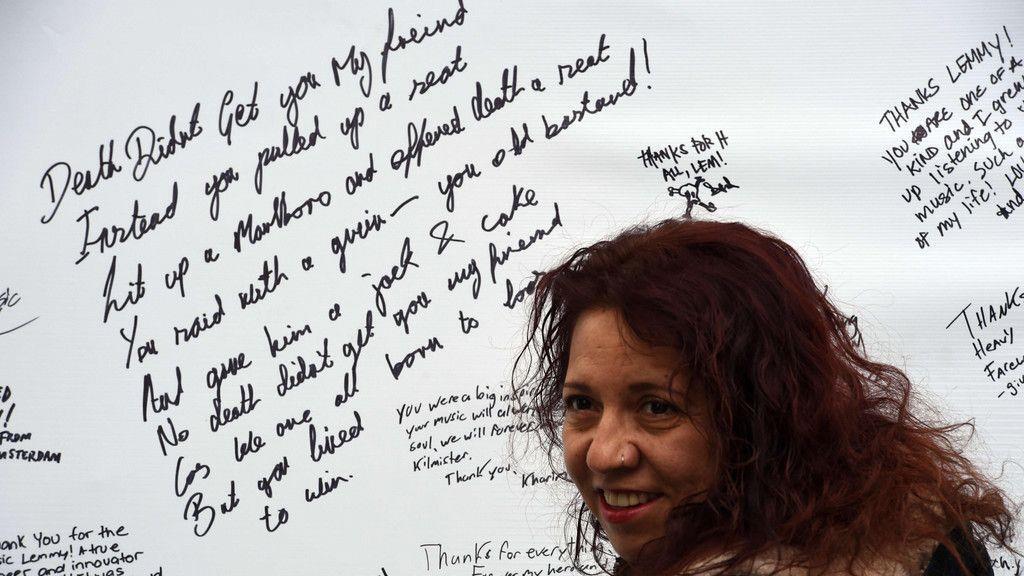 Death Didnt Get you My freind
Instead you pulled up a seat
Lit up a Marlboro and offered death a seat
You said with a grin - you old bastard!
And gave him a jack & coke
No death didn't get you my friend
Cos We are all born to
But you lived
to win.
THANKS FOR IT
ALL, LEM!
THANKS LEMMY!
YOU ARE ONE OF A
KIND AND I
UP LISTENING TO
MUSIC, SUCH A
OF MY LIFE!
THANKS
HEAVY
-
YOU were a big
your music will
soul, we will forever
Kilmister.
Thank you.
FROM
AMSTERDAM
Thank You for the
music Lemmy! A true
and innovator
Thanks for everything
my hero